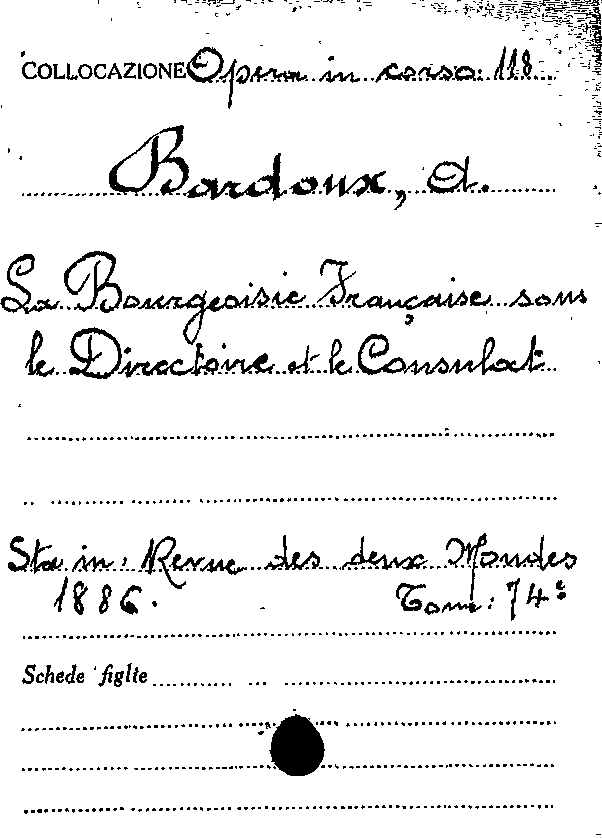 COLLOCAZIONE Opera in corso 118
Bardoux, A.
La Bourgeoisie Française sous
le Directoire et le Consulat
Sta in: Revue des deux Mondes
1886. Tom: 74º
Schede figlie